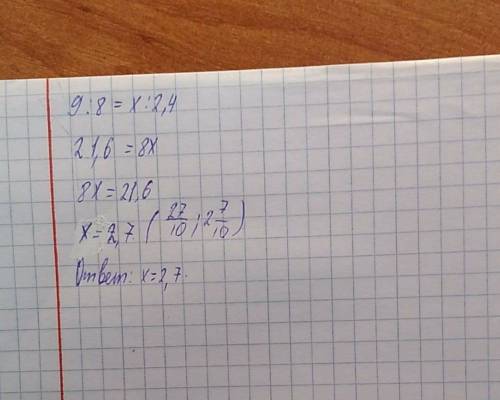 9:8 = x:2,4
21,6 = 8x
8x = 21,6
x = 2,7 (27/10; 2 7/10)
Ответ: x = 2,7.